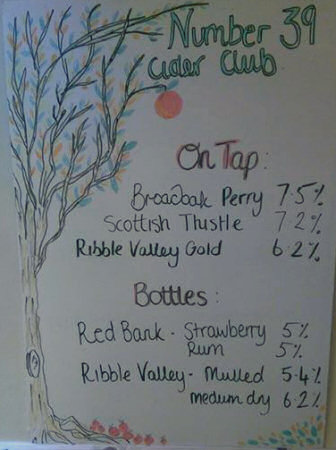 Number 39
Cider Club
On Tap:
Broadoak Perry 7.5%
Scottish Thistle 7.2%
Ribble Valley Gold 6.2%
Bottles:
Red Bank - Strawberry 5%
Rum 5%
Ribble Valley - Mulled 5.4%
medium dry 6.2%